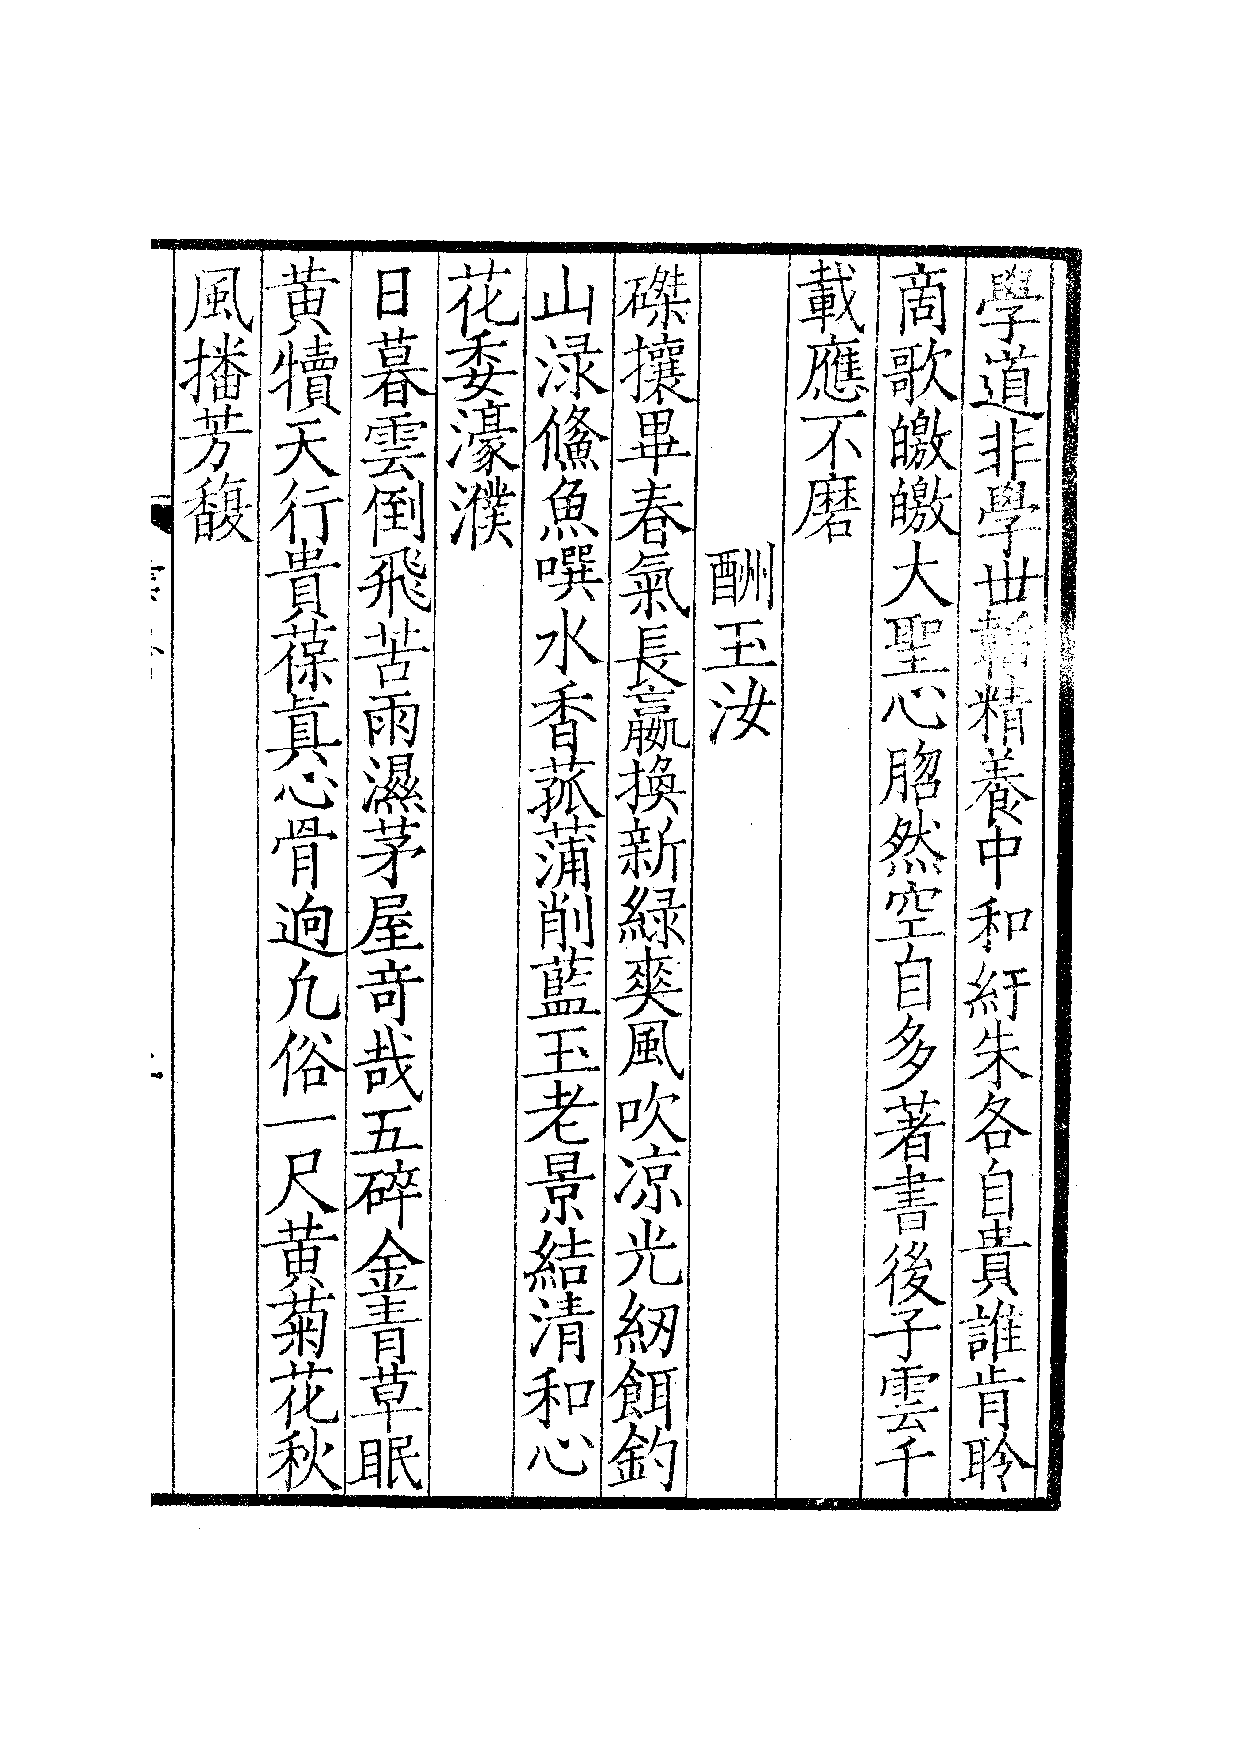 學道非學丗韜精養中和紆朱各自貴誰肯聆
商歌皦皦大聖心脗然空自多著書後子雲千
載應不磨
酬玉汝
磔攘畢春氣長嬴換新緑爽風吹凉光紉餌釣
山渌鯈魚噀水香菰蒲削藍玉老景結清和心
花委濠濮
日暮雲倒飛苦雨濕茅屋竒哉五碎金青草眠
黄犢天行貴葆真心骨逈凢俗一尺黄菊花秋
風播芳馥